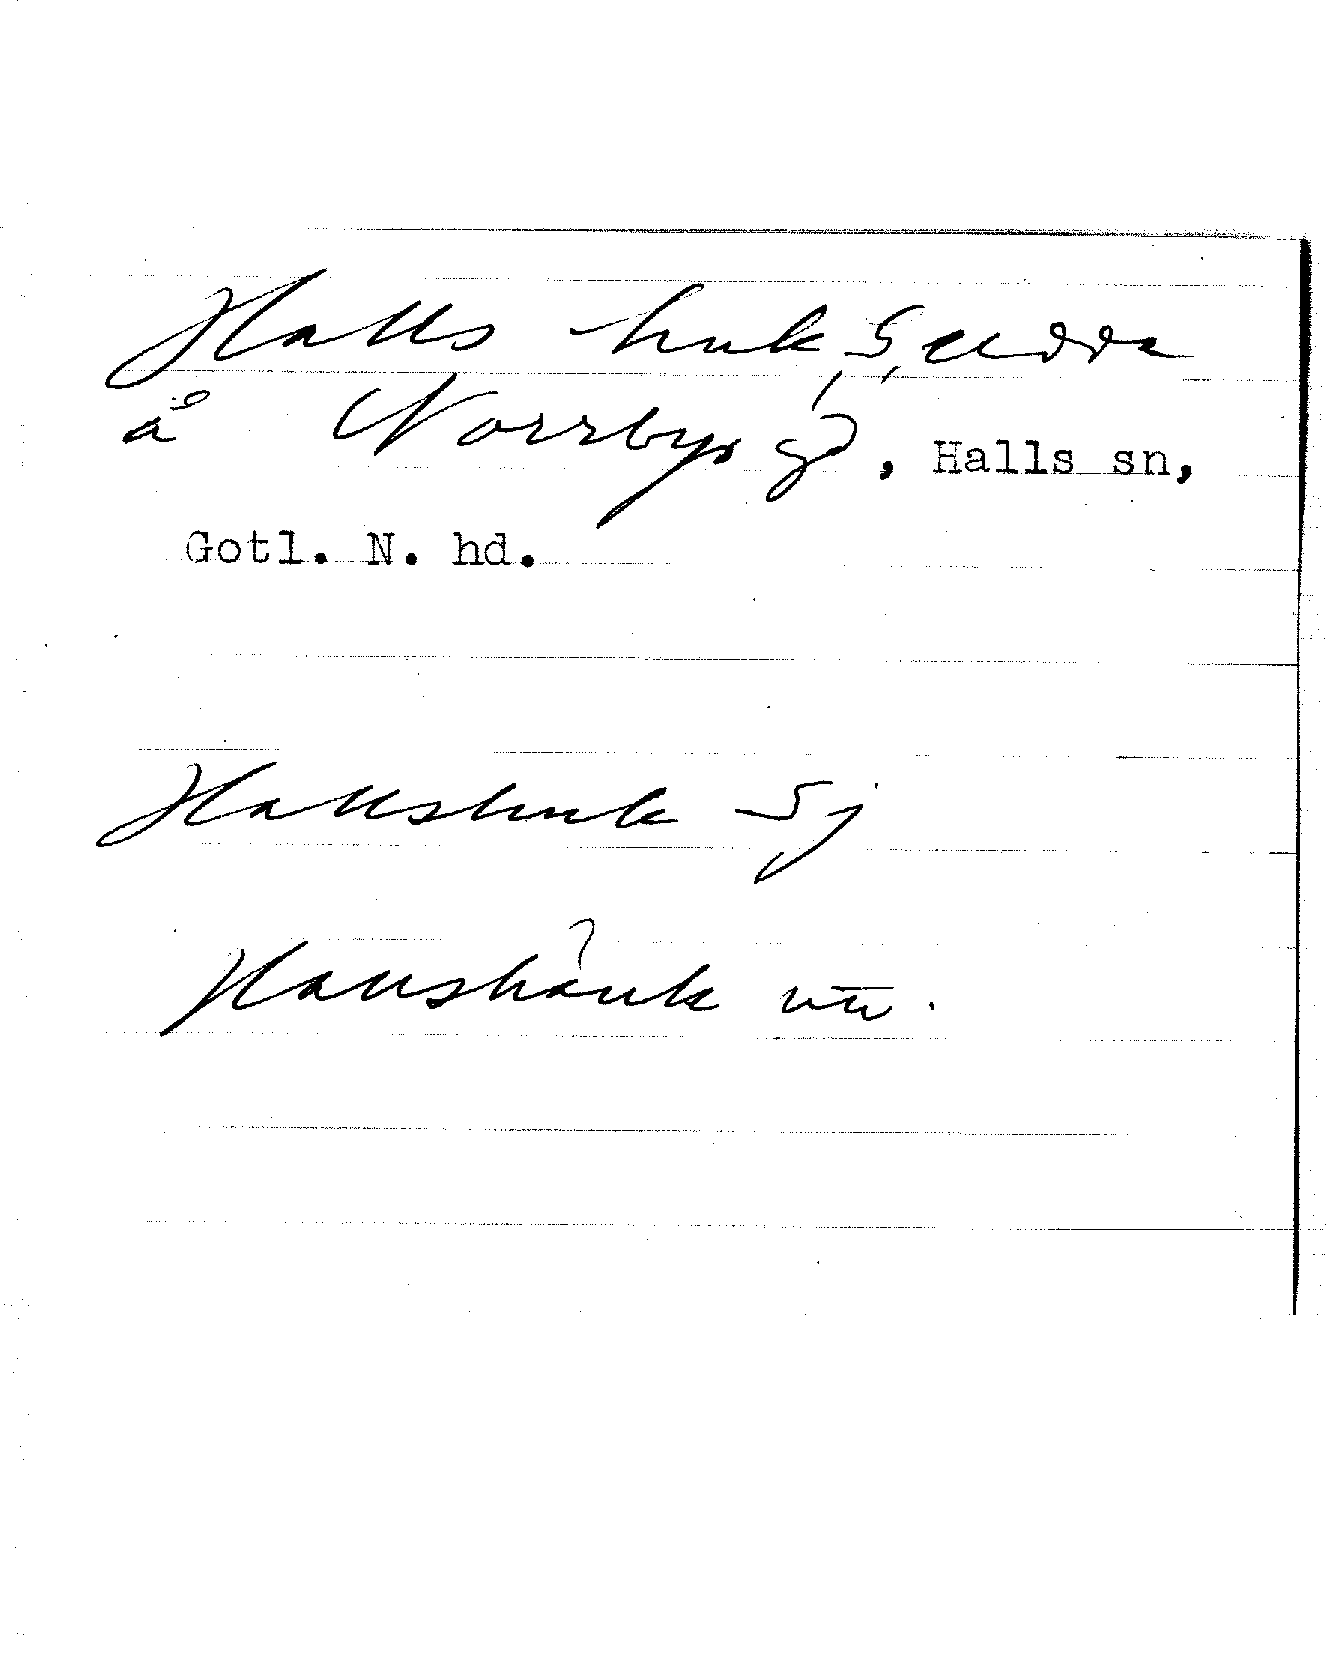 Halls huk, S, udda
å Norrbys gd, Halls sn,
Gotl. N. hd.
Hallshuk Sj
Hallshåuk